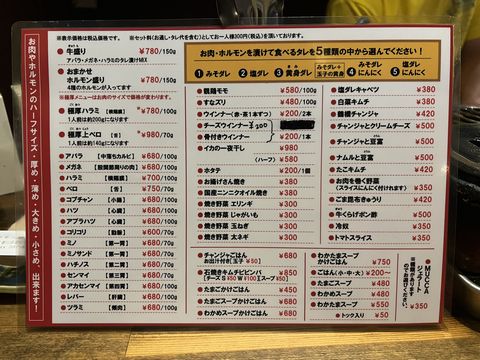 ※表示価格は税込価格です。 ※セット料(お通し・タレ代を含む)としてお一人様300円(税込)を頂いております。
お肉やホルモンのハーフサイズ・厚め・薄め・大きめ・小さめ、出来ます！
牛盛り ¥780/150g
アバラ・メガネ・ハラミのタレ漬けMIX
おまかせ
ホルモン盛り ¥680/150g
4種のホルモンが入ってます
※極厚メニューはお肉のサイズで価格が変動します。
極厚ハラミ [横隔膜] *¥780/100g
1人前は約200gになります
極厚上ベロ [舌] *¥980/70g
1人前は約140gになります
アバラ [中落ちカルビ] ¥680/100g
メガネ [股関節周りの肉] ¥680/100g
ハラミ [横隔膜] ¥780/100g
ベロ [舌] ¥750/70g
コプチャン [小腸] ¥680/100g
ハツ [心臓] ¥680/100g
アブラハツ [心臓] ¥680/100g
コリコリ [動脈] ¥600/70g
ミノ [第一胃] ¥680/70g
ミノサンド [第一胃] ¥680/70g
ハチノス [第二胃] ¥680/70g
センマイ [第三胃] ¥680/70g
アカセンマイ [第四胃] ¥680/100g
レバー [肝臓] ¥680/100g
ツラミ [頬肉] ¥680/100g
お肉・ホルモンを漬けて食べるタレを5種類の中から選んでください！
1 みそダレ 2 塩ダレ 3 黄身ダレ みそダレ+玉子の黄身 4 みそダレにんにく 5 塩ダレにんにく
鶏モモ ¥580/100g
すなズリ ¥480/100g
ウインナー(赤・茶1本ずつ) ¥200/2本
チーズウインナー ¥300
骨付きウインナー ¥200/1本
イカの一夜干し ¥980
(ハーフ) ¥580
ホタテ ¥200/1個
お揚げさん焼き ¥380
国産ニンニクオイル焼き ¥380
焼き野菜 エリンギ ¥300
焼き野菜 じゃがいも ¥300
焼き野菜 玉ねぎ ¥300
焼き野菜 太ネギ ¥300
塩ダレキャベツ ¥380
白菜キムチ ¥380
鶴橋チャンジャ ¥480
チャンジャとクリームチーズ ¥500
チャンジャと豆富 ¥500
ナムルと豆富 ¥500
たこキムチ ¥420
お肉を巻く野菜 ¥350
(スライスにんにく付けれます)
ごま昆布きゅうり ¥420
牛くらげポン酢 ¥500
冷奴 ¥350
トマトスライス ¥350
チャンジャごはん ¥680
お出汁付き(玉子 ¥50)
石焼きキムチビビンバ ¥850
(チーズ S ¥50 W ¥100)(スープ付)
たまごごはん ¥450
たまごスープかけごはん ¥680
わかめスープかけごはん ¥680
わかたまスープ ¥750
かけごはん
ごはん(小・中・大) ¥200〜
たまごスープ ¥480
わかめスープ ¥480
わかたまスープ ¥550
トック入り ¥50
MUCCA
ジェラート
¥350